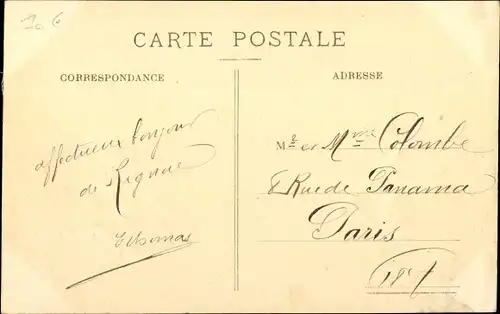 CARTE POSTALE
CORRESPONDANCE
ADRESSE
affectueux bonjour
de Rignac
Thomas
Mr et Mme Colombe
8 Rue de Panama
Paris